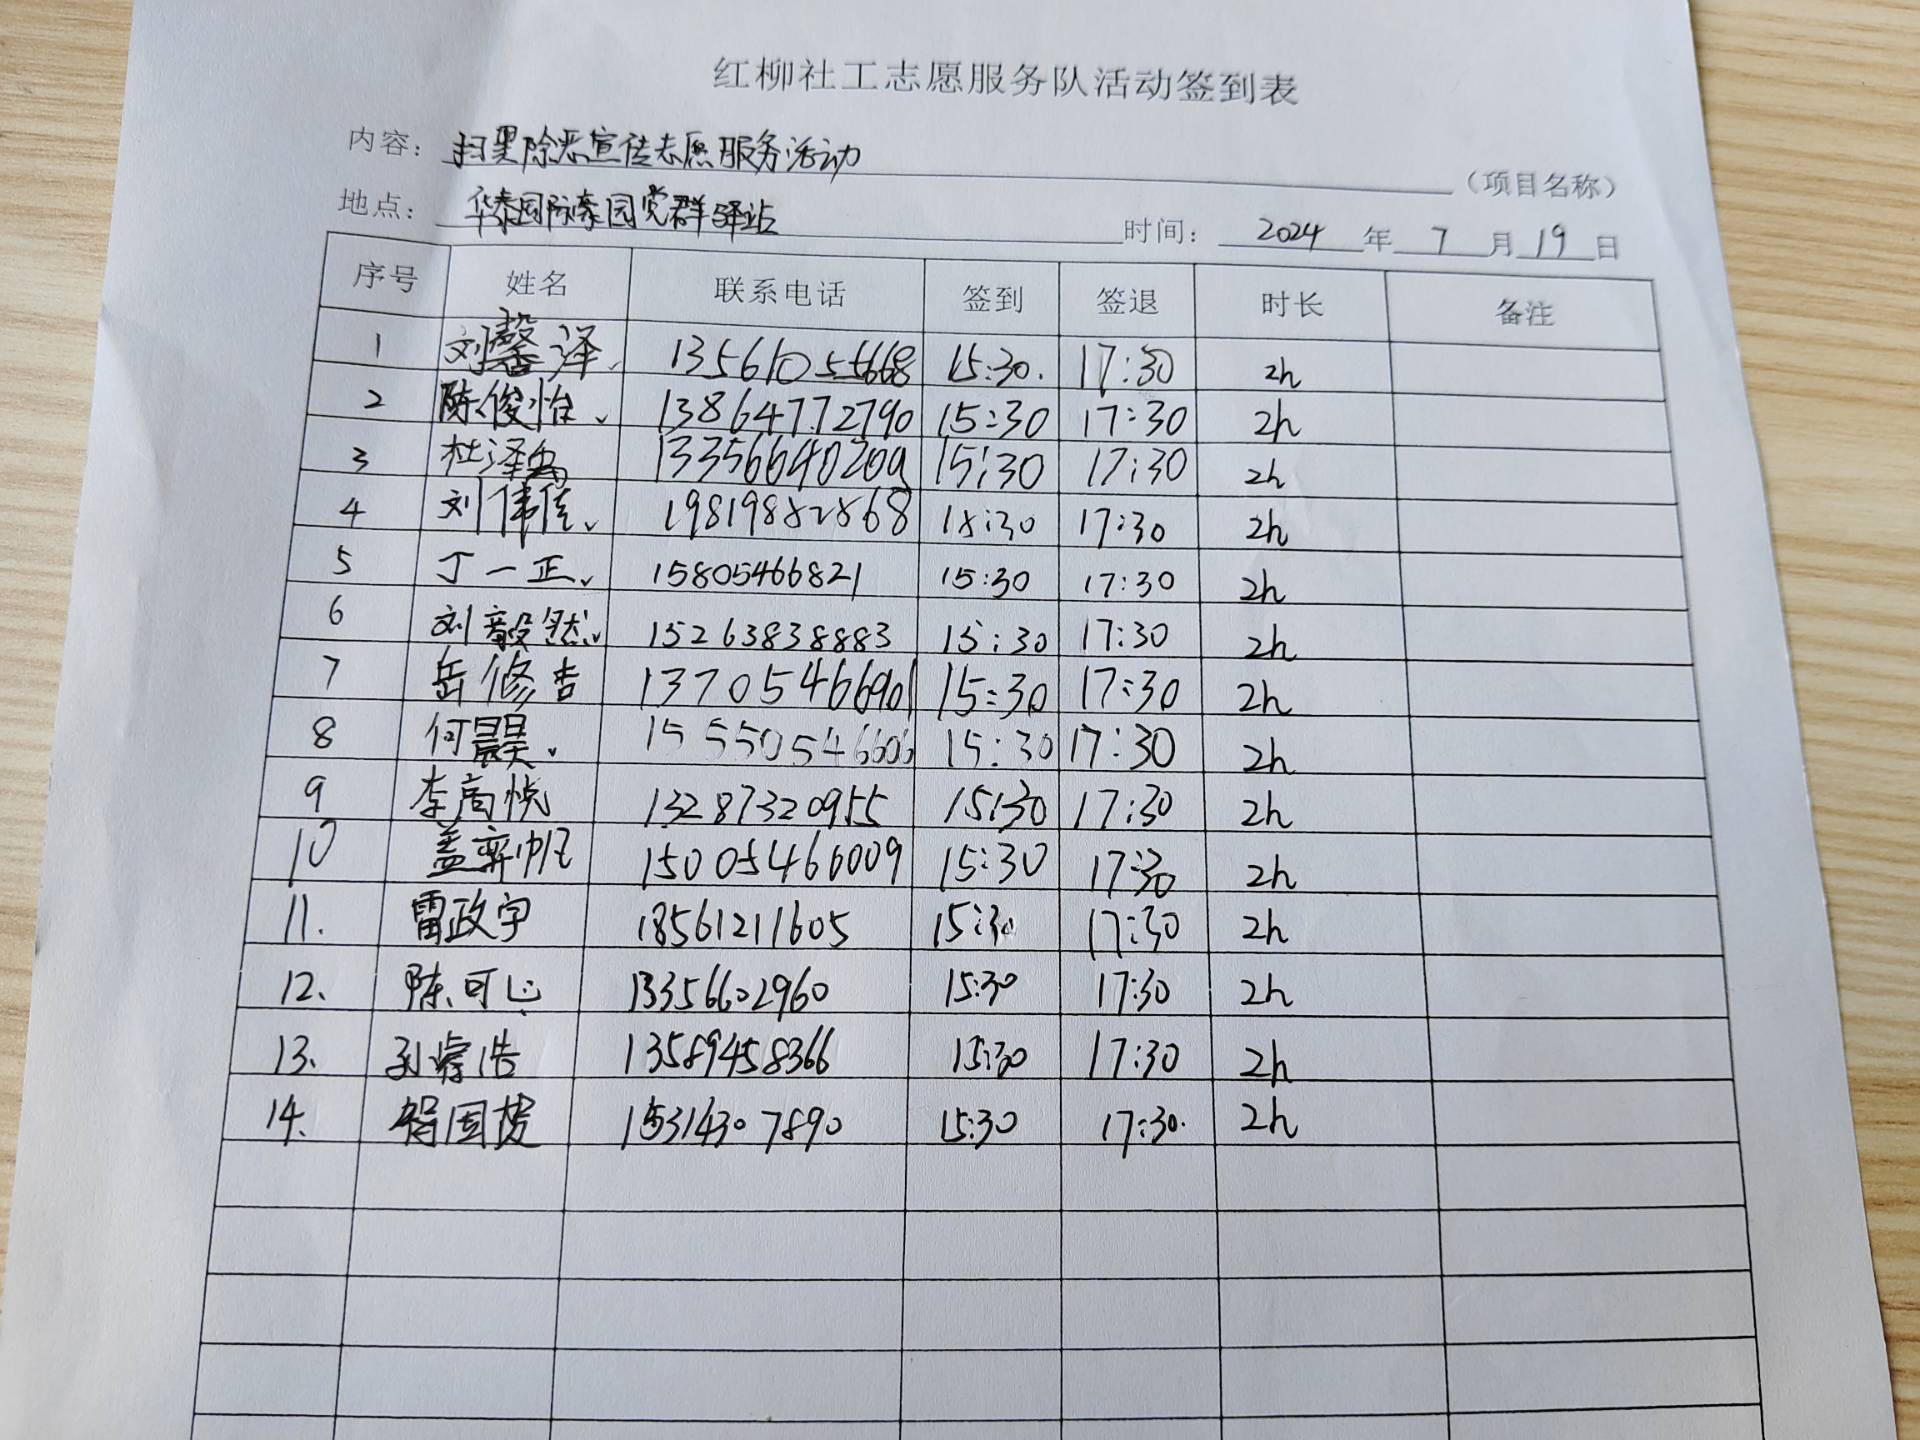 红柳社工志愿服务队活动签到表
内容：扫黑除恶宣传志愿服务活动（项目名称）
地点：华泰国际豪园党群驿站 时间：2024年7月19日
序号 姓名 联系电话 签到 签退 时长 备注
1 刘馨泽 13561055668 15:30. 17:30 2h
2 陈俊怡 13864772790 15:30 17:30 2h
3 杜泽 13356640209 15:30 17:30 2h
4 刘伟佳 19819882868 15:30 17:30 2h
5 丁一正 15805466821 15:30 17:30 2h
6 刘毅然 15263838883 15:30 17:30 2h
7 岳修杏 13705466901 15:30 17:30 2h
8 何晨昊 15550546606 15:30 17:30 2h
9 李高悦 13287320955 15:30 17:30 2h
10 盖弈帆 15005466009 15:30 17:30 2h
11. 雷政宇 18561211605 15:30 17:30 2h
12. 陈可心 13356602960 15:30 17:30 2h
13. 孙睿浩 13589458366 15:30 17:30 2h
14. 国 15314307890 15:30 17:30. 2h